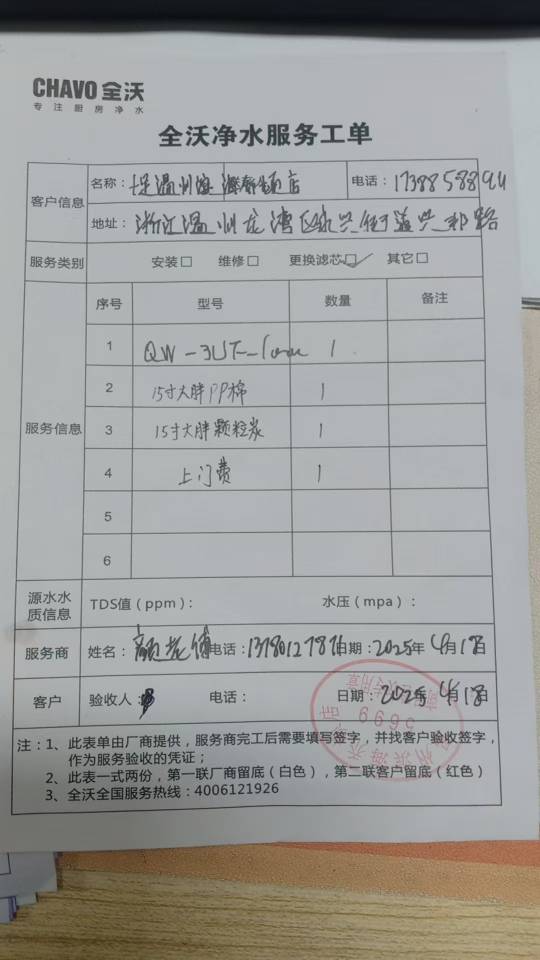 CHAVO 全沃
专注厨房净水
全沃净水服务工单
客户信息
名称: 温州 店 电话: 1738858894
地址: 浙江温州龙湾区永兴街道兴 路
服务类别 安装□ 维修□ 更换滤芯☑ 其它□
服务信息
序号 型号 数量 备注
1 QW-3UF- 1
2 15寸大胖PP棉 1
3 15寸大胖颗粒炭 1
4 上门费 1
5
6
源水水质信息 TDS值(ppm): 水压(mpa):
服务商 姓名: 颜 傅 电话: 日期: 2025年4月1日
客户 验收人: 电话: 日期: 2025年4月1日
注:1、此表单由厂商提供,服务商完工后需要填写签字,并找客户验收签字,
作为服务验收的凭证;
2、此表一式两份,第一联厂商留底(白色),第二联客户留底(红色)
3、全沃全国服务热线:4006121926